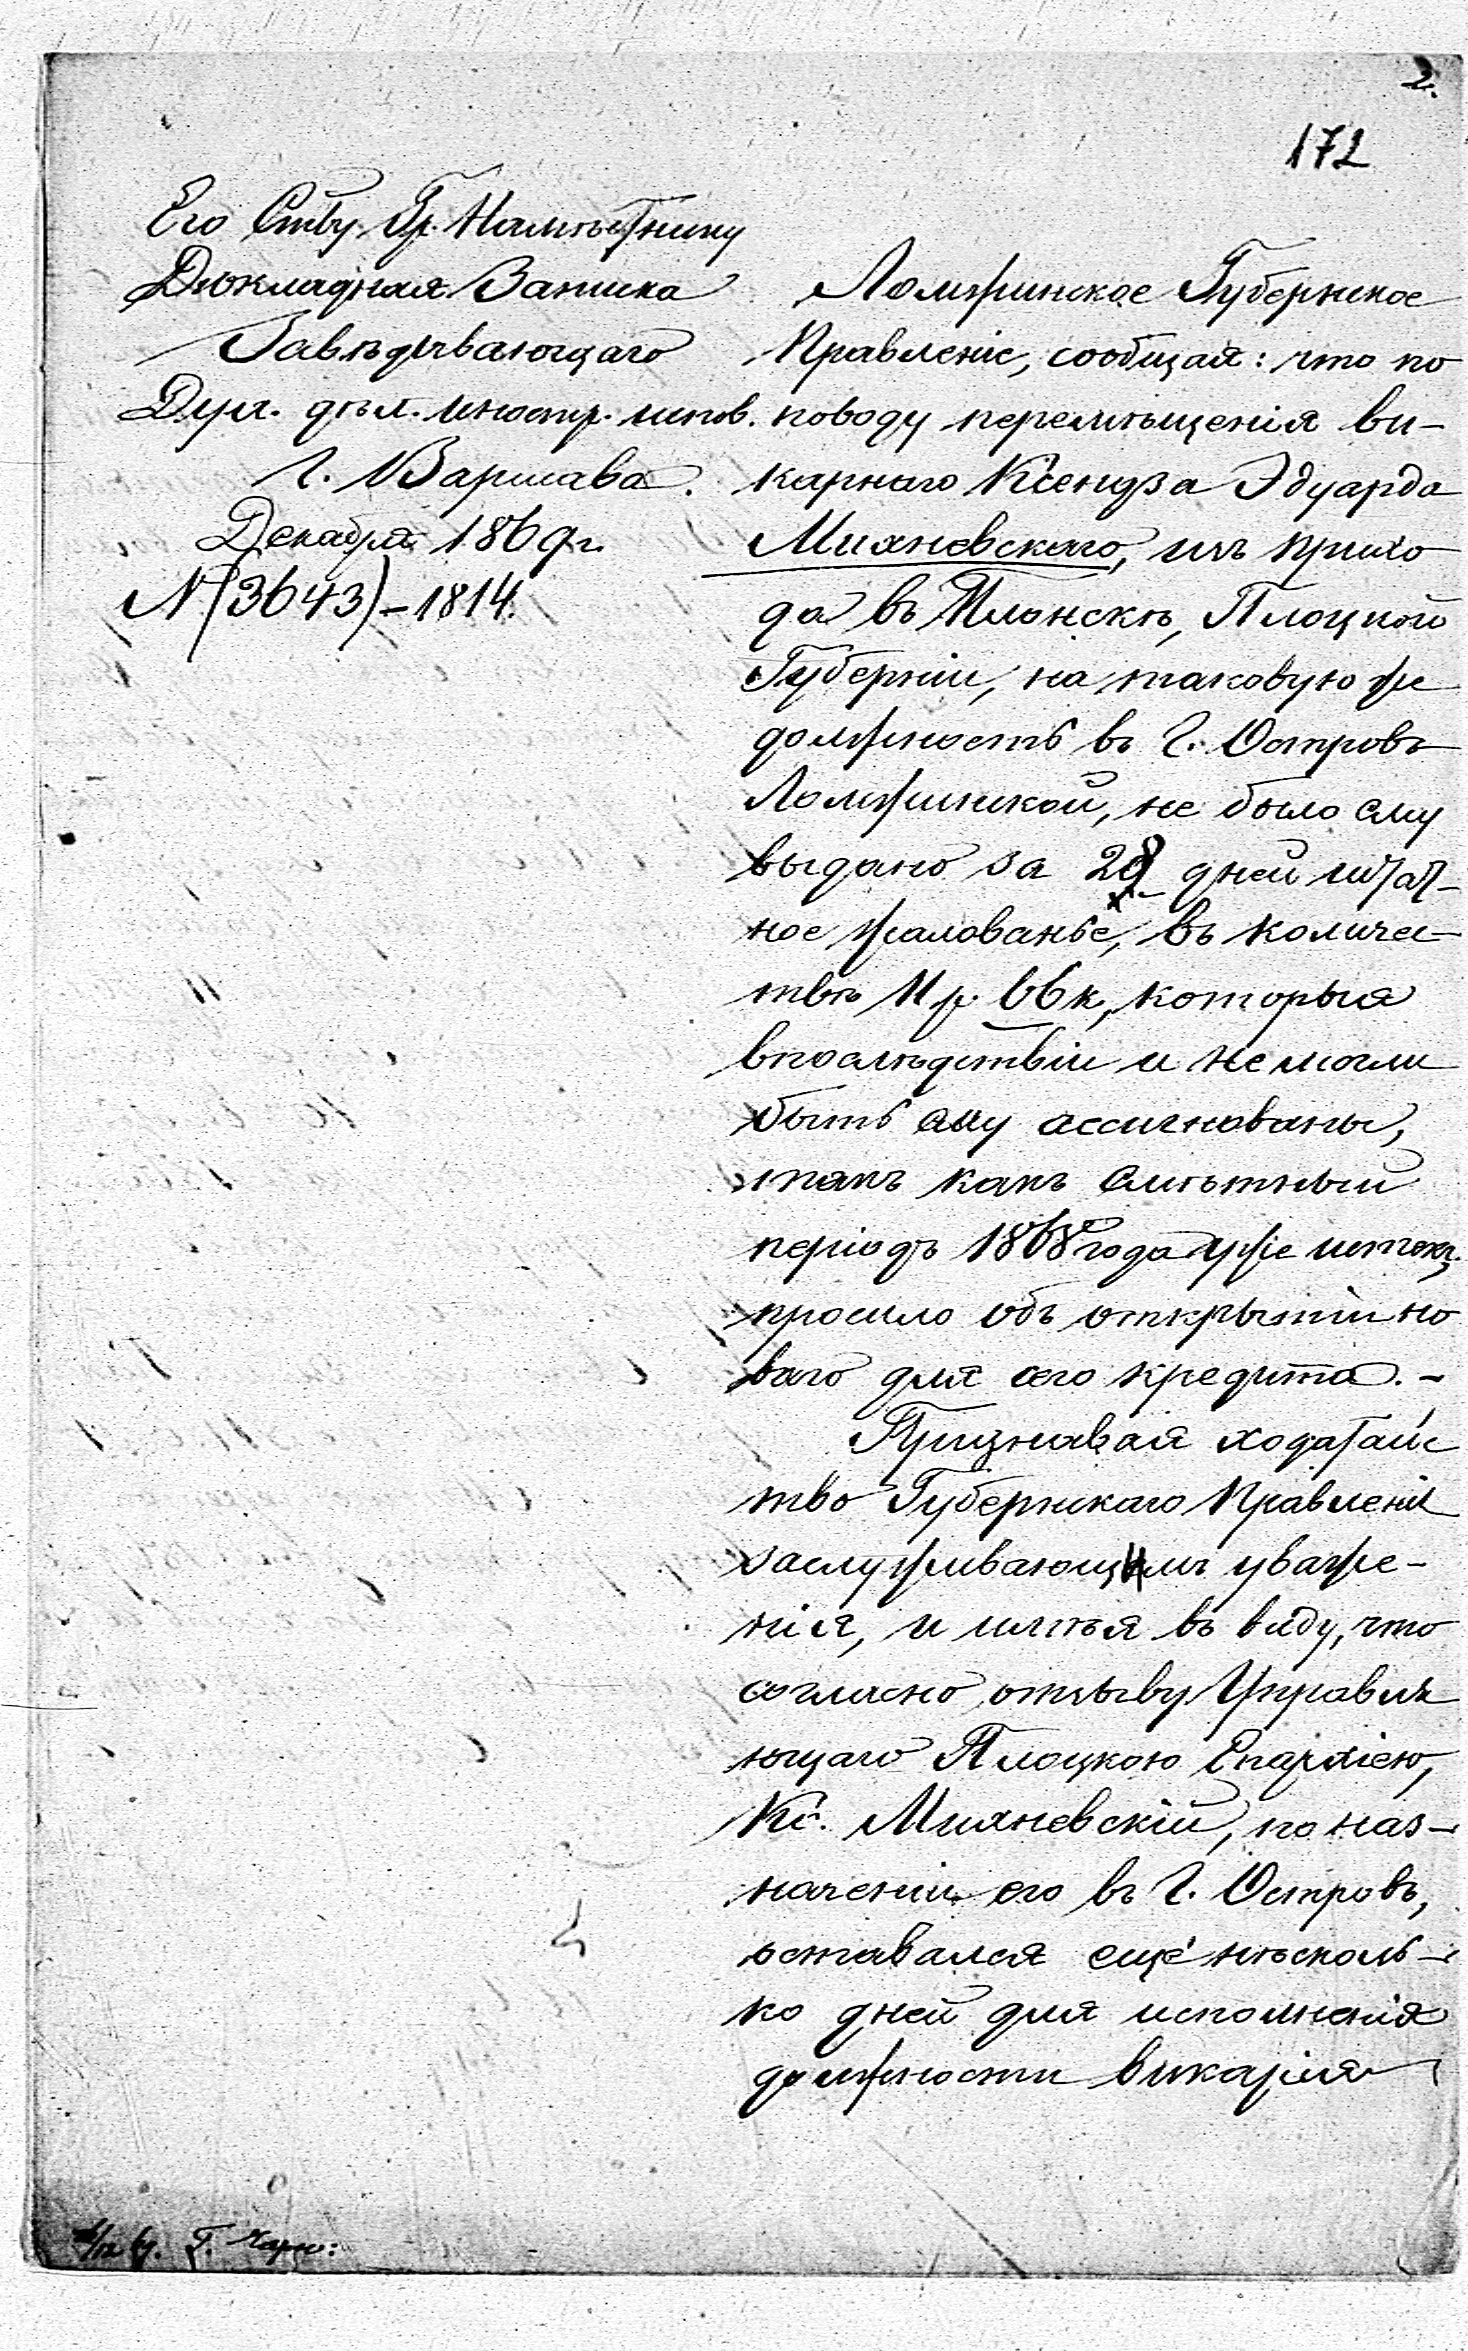 2.
172
Его Ству Гр. Намѣстнику
Докладная Записка
Завѣдывающаго
Дух. дѣл. иностр. испов.
г. Варшава.
Декабря 1869 г.
N (3643) – 1814.
Ломжинское Губернское
Правленіе, сообщая: что по
поводу перемѣщенія ви-
карнаго Ксендза Эдуарда
Мияневскаго, изъ прихо
да въ Плонскѣ, Плоцкой
Губерніи, на таковую же
должность въ г. Островъ
Ломжинской, не было ему
выдано за 28 дней штат-
ное жалованье, въ количес-
твѣ 11 р. 66 к, которыя
впослѣдствіи и не могли
быть ему ассигнованы,
такъ какъ смѣтный
періодъ 1868 года уже истекъ,
просило объ открытіи но
ваго для сего кредита. –
Признавая ходатайс
тво Губернскаго Правленія
заслуживающимъ уваже-
нія, и имѣя въ виду, что
согласно отзыву Управля
ющаго Плоцкою Епархіею,
Кс. Мияневскій, по наз-
наченіи его въ г. Островъ,
оставался еще нѣсколь-
ко дней для исполненія
должности викарія